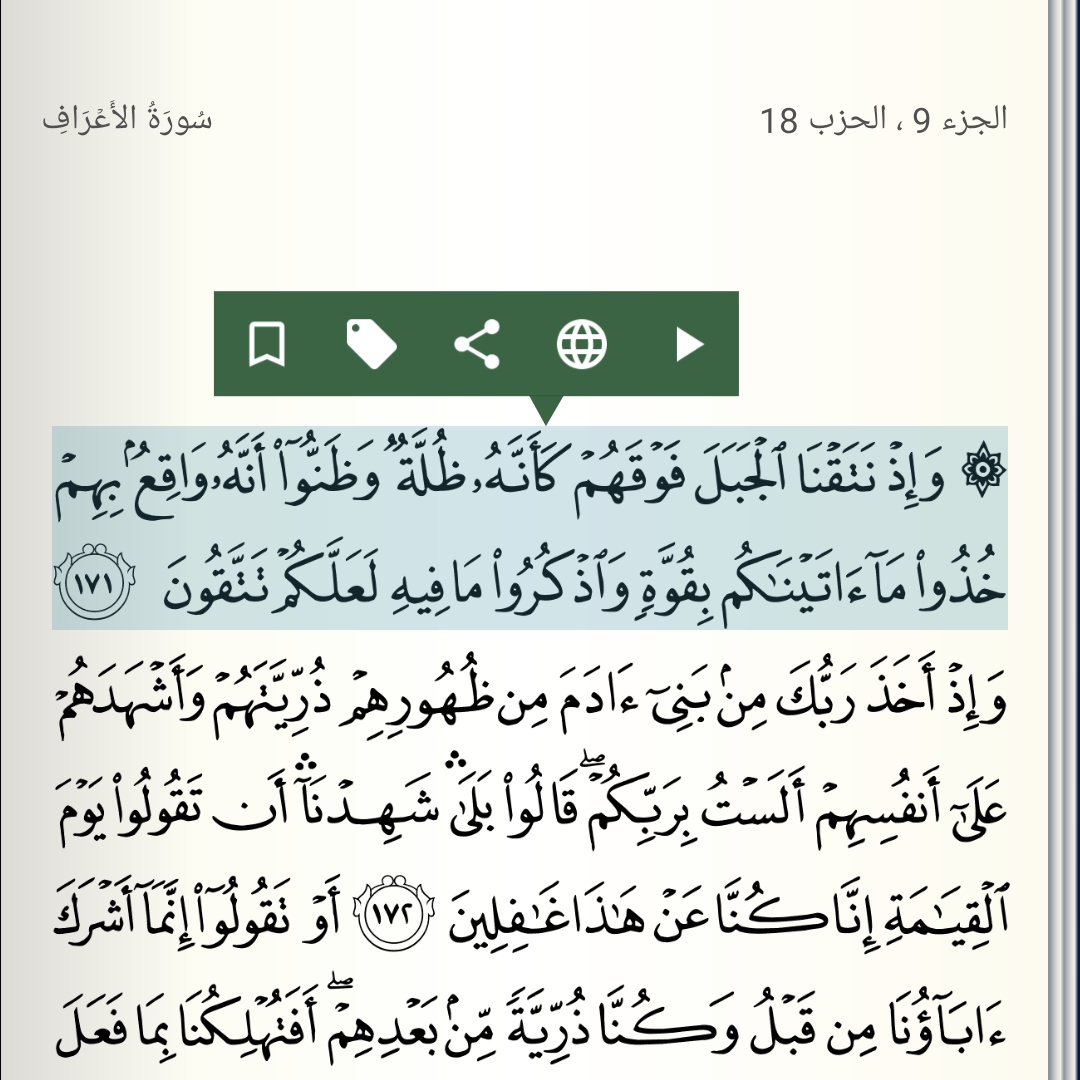 الجزء 9 ، الحزب 18
سُورَةُ الأَعْرَافِ
۞ وَإِذۡ نَتَقۡنَا ٱلۡجَبَلَ فَوۡقَهُمۡ كَأَنَّهُۥ ظُلَّةٞ وَظَنُّوٓاْ أَنَّهُۥ وَاقِعُۢ بِهِمۡ
خُذُواْ مَآ ءَاتَيۡنَٰكُم بِقُوَّةٖ وَٱذۡكُرُواْ مَا فِيهِ لَعَلَّكُمۡ تَتَّقُونَ ١٧١
وَإِذۡ أَخَذَ رَبُّكَ مِنۢ بَنِيٓ ءَادَمَ مِن ظُهُورِهِمۡ ذُرِّيَّتَهُمۡ وَأَشۡهَدَهُمۡ
عَلَىٰٓ أَنفُسِهِمۡ أَلَسۡتُ بِرَبِّكُمۡۖ قَالُواْ بَلَىٰۛ شَهِدۡنَآۛ أَن تَقُولُواْ يَوۡمَ
ٱلۡقِيَٰمَةِ إِنَّا كُنَّا عَنۡ هَٰذَا غَٰفِلِينَ ١٧٢ أَوۡ تَقُولُوٓاْ إِنَّمَآ أَشۡرَكَ
ءَابَآؤُنَا مِن قَبۡلُ وَكُنَّا ذُرِّيَّةٗ مِّنۢ بَعۡدِهِمۡۖ أَفَتُهۡلِكُنَا بِمَا فَعَلَ